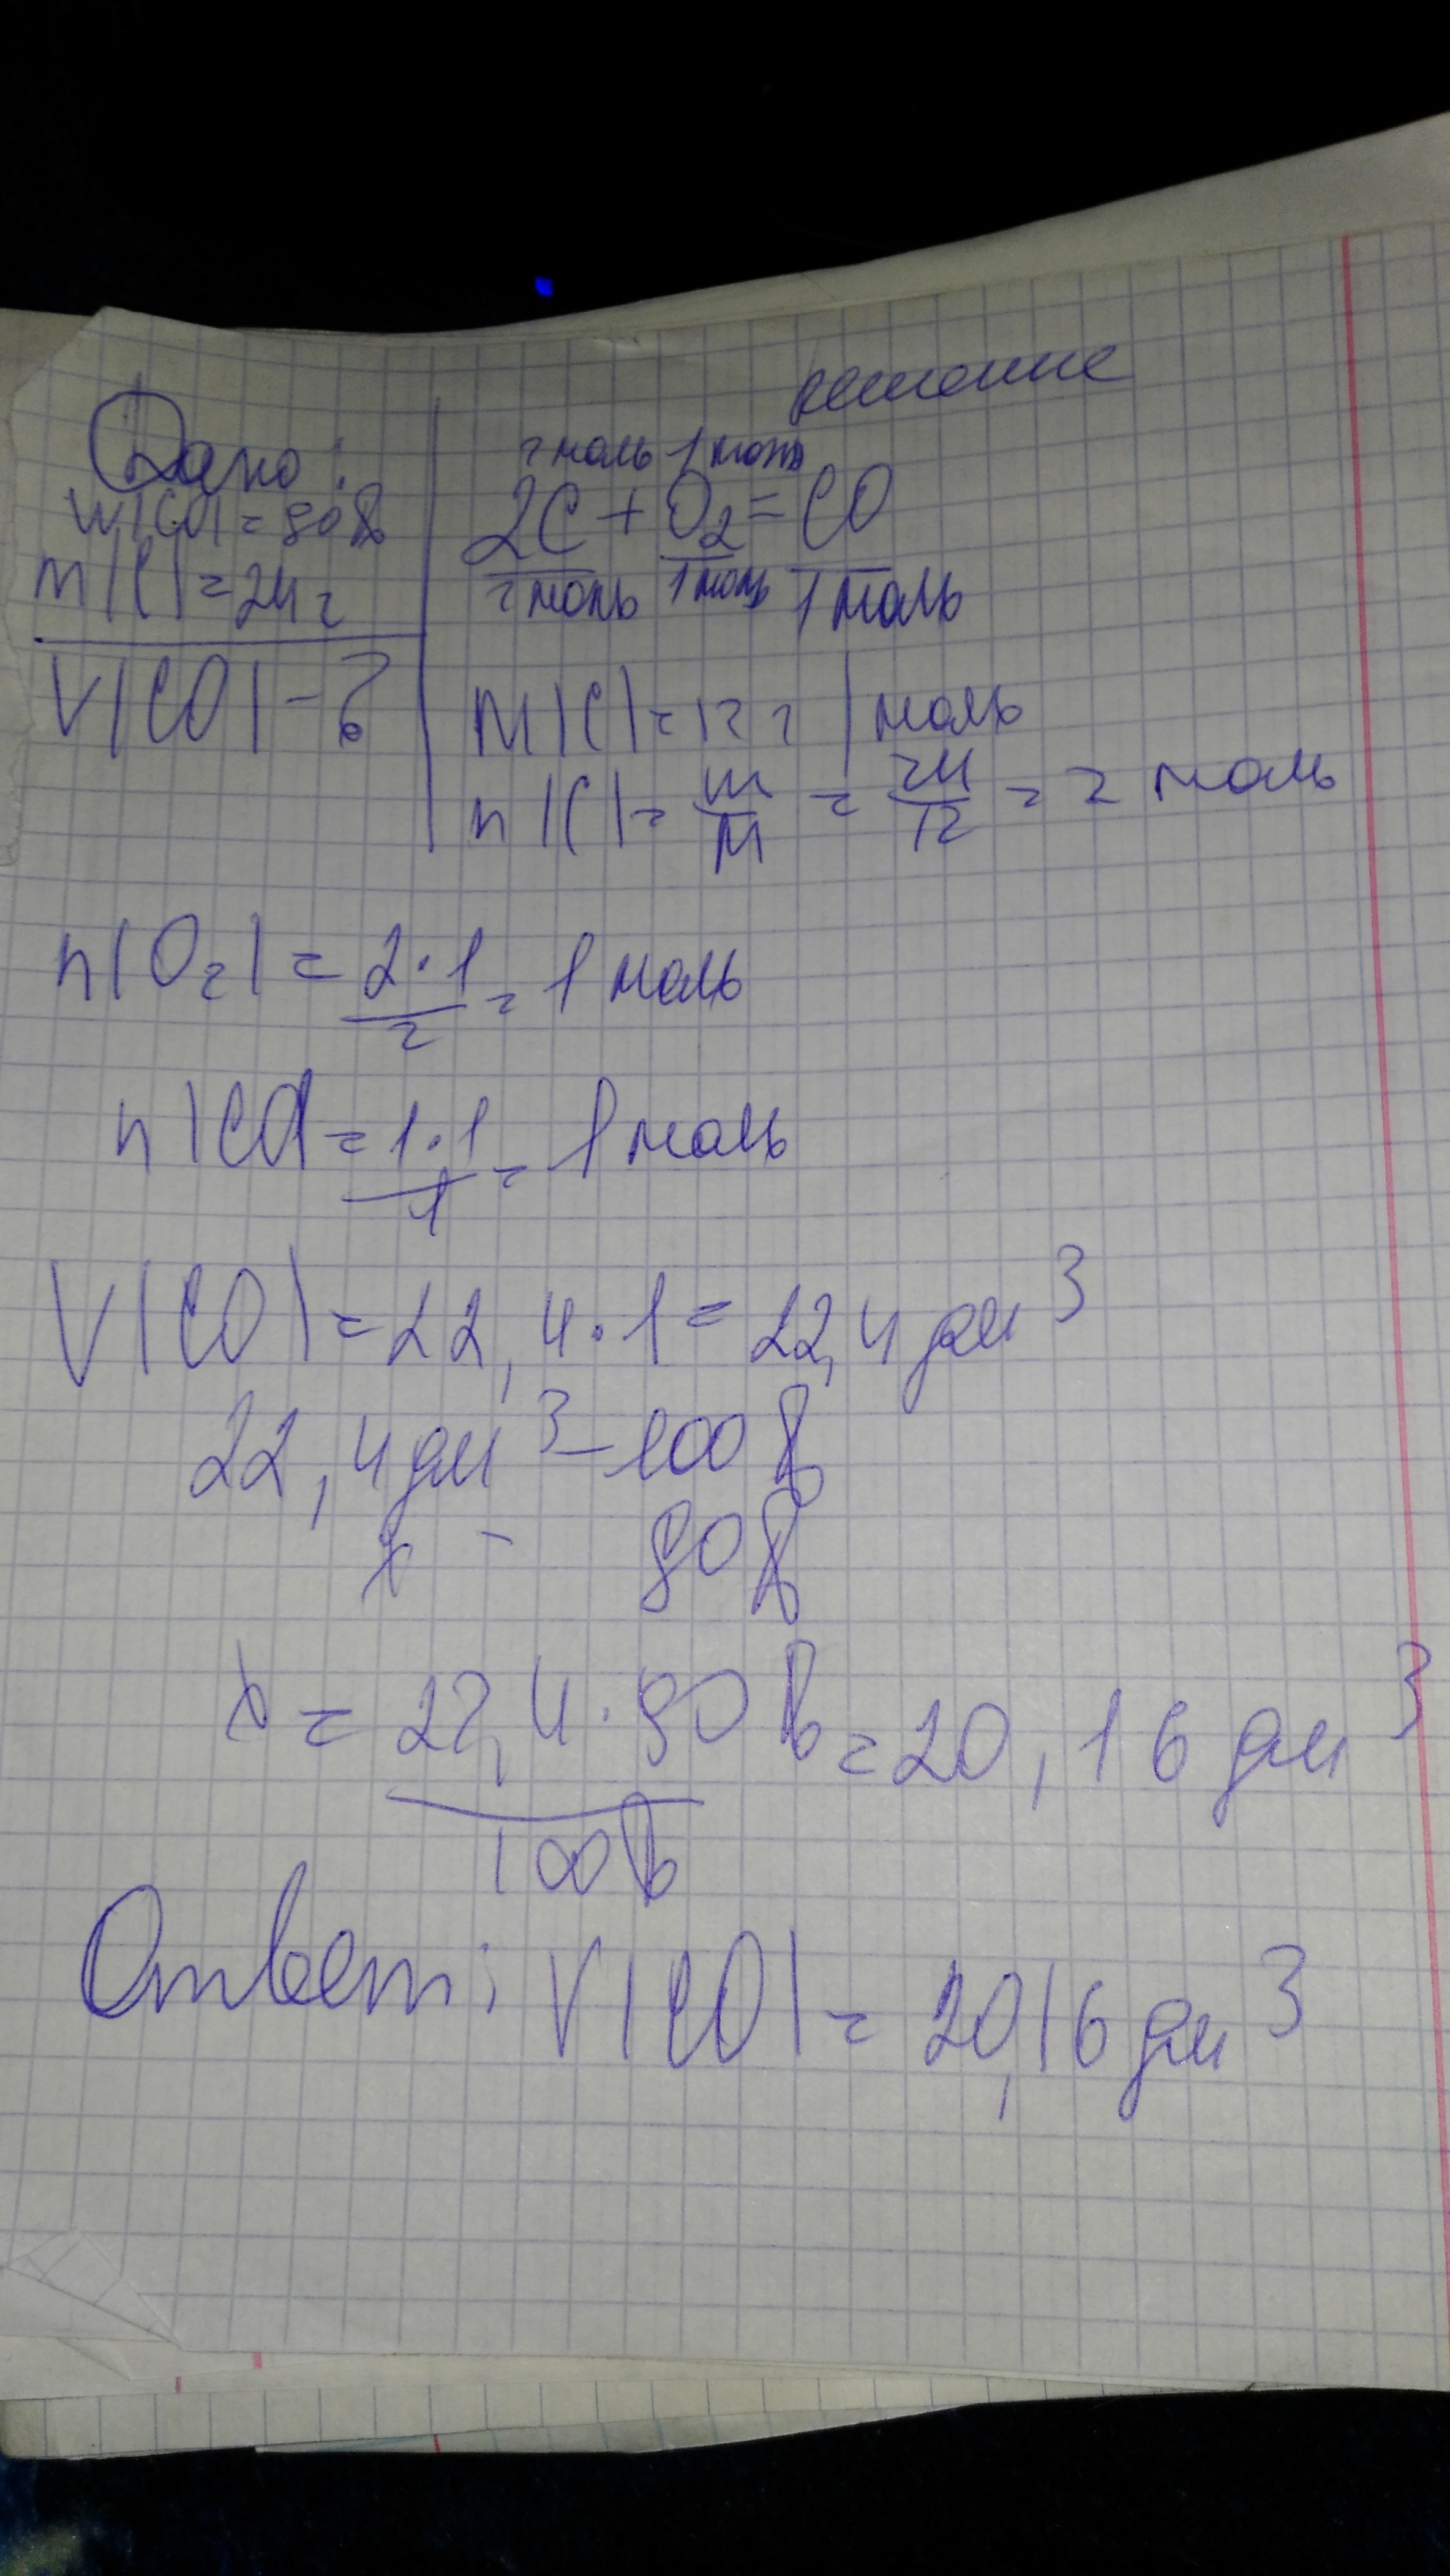 решение
Дано:
W|CO| = 90%
m|C| = 24 г
V|CO| - ?
2 моль 1 моль
2C + O₂ = CO
2 моль 1 моль 1 моль
M|C| = 12 г | моль
n|C| = m/M = 24/12 = 2 моль
n|O₂| = 2·1/2 = 1 моль
n|CO| = 1·1/1 = 1 моль
V|CO| = 22,4·1 = 22,4 дм³
22,4 дм³ - 100%
x - 90%
x = 22,4·90%/100% = 20,16 дм³
Ответ: V|CO| = 20,16 дм³